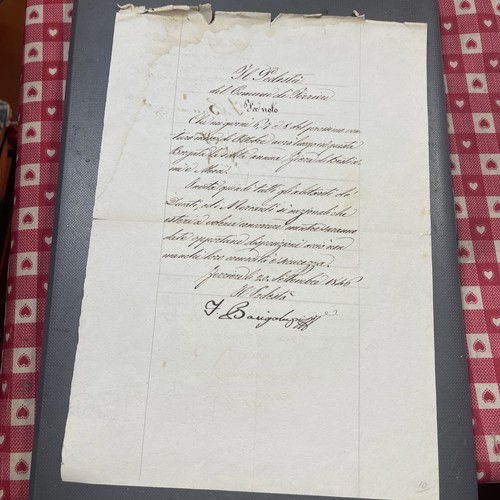 Il Podestà
del Comune di
Fà noto
Che nei giorni 6, 7 e 8 del prossimo ven
turo mese di Ottobre avrà luogo in questa
Borgata la solita annua Fiera di Bestia
mi e Merci.
Invita quindi tutti gli abitanti dei
ed i Mercanti sì nazionali che
esteri a volervi concorrere mentre saranno
date opportune disposizioni
loro comodità e sicurezza.
li 20 Settembre 1846
Il Podestà
10